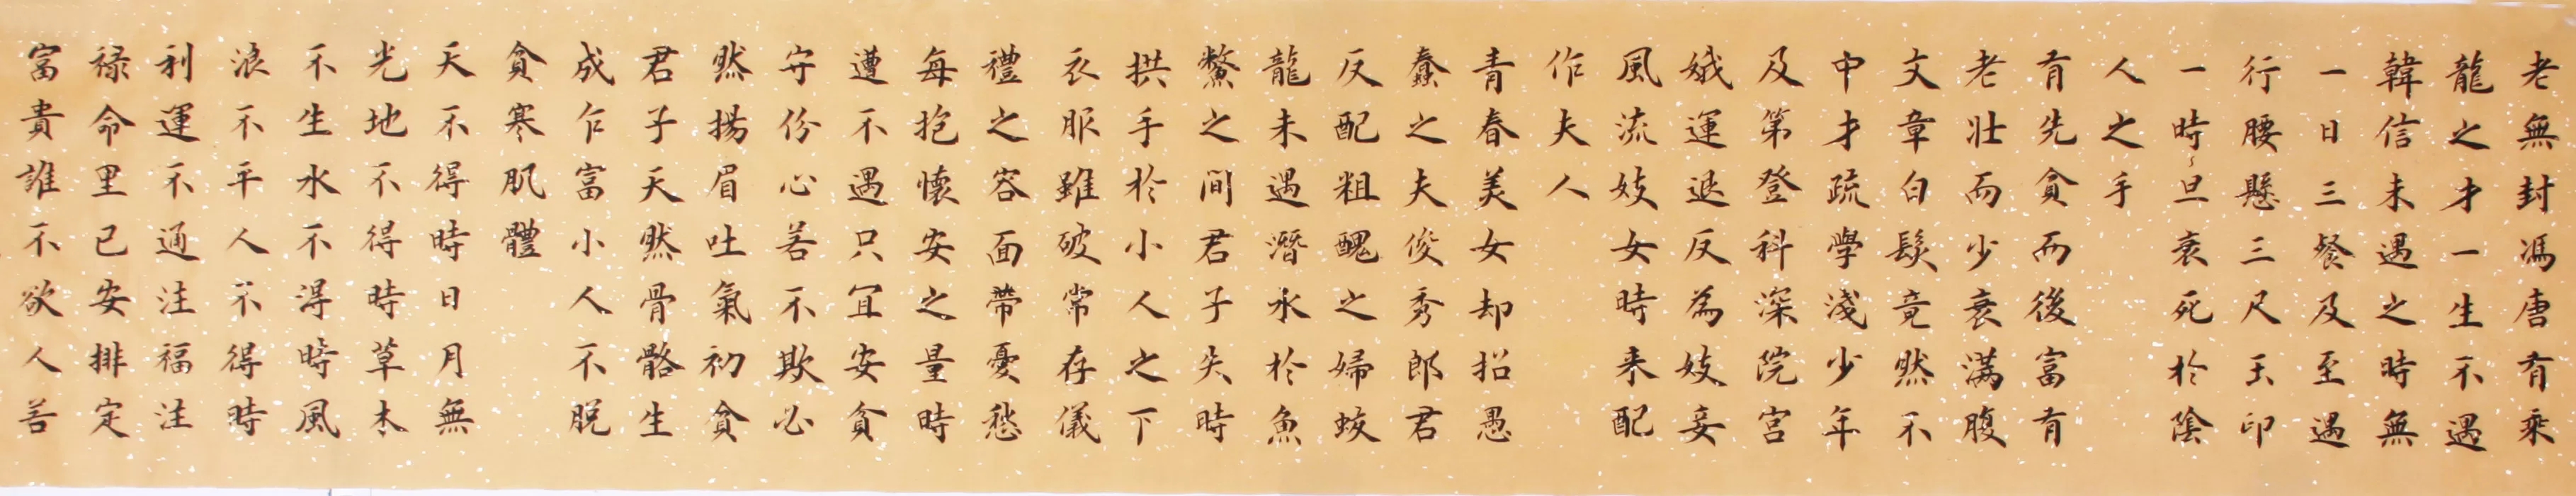 老無封馮唐有乘
龍之才一生不遇
韓信未遇之時無
一日三餐及至遇
行腰懸三尺玉印
一時〻旦衰死於陰
人之手
有先貧而後富有
老壯而少衰滿腹
文章白髮竟然不
中才疏學淺少年
及第登科深院宮
娥運退反為妓妾
風流妓女時来配
作夫人
青春美女却招愚
蠢之夫俊秀郎君
反配粗醜之婦蛟
龍未遇潛水於魚
鱉之間君子失時
拱手於小人之下
衣服雖破常存儀
禮之容面帶憂愁
每抱懷安之量時
遭不遇只宜安貧
守份心若不欺必
然揚眉吐氣初貧
君子天然骨骼生
成乍富小人不脱
貪寒肌體
天不得時日月無
光地不得時草木
不生水不得時風
浪不平人不得時
利運不通注福注
禄命里已安排定
富貴誰不欲人若